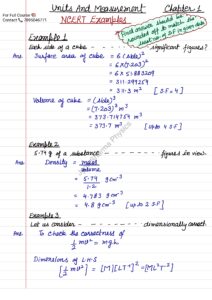 For Full Course
Contact : 7895046771
Units And Measurement
Chapter 1
NCERT Examples
Final answer should be
rounded off to match the
least no. of S.F in given data
Example 1
Each side of a cube ------------ significant figures?
Ans Surface area of cube = 6 (side)²
= 6 × (7.203)²
= 6 × 51.883209
= 311.299254
= 311.3 m² [S.F = 4]
Volume of cube = (side)³
= (7.203)³ m³
= 373.714754 m³
= 373.7 m³ [upto 4 S.F]
Example 2
5.74 g of a substance ------------ figures in view.
Ans Density = mass/volume
= 5.74/1.2 g cm⁻³
= 4.783 g cm⁻³
= 4.8 g cm⁻³ [upto 2 S.F]
Example 3
Let us consider ------------ dimensionally correct.
Ans To Check the correctness of
½ mv² = mgh
Dimensions of L.H.S
[½ mv²] = [M][LT⁻¹]² = [ML²T⁻²]